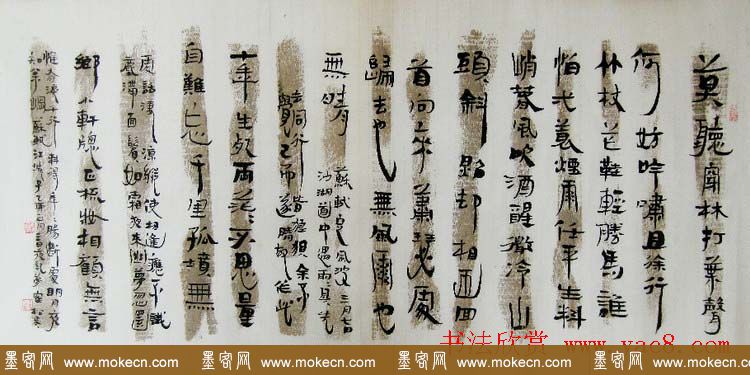 莫聽穿林打葉聲
何妨吟嘯且徐行
竹杖芒鞋輕勝馬誰
怕一蓑煙雨任平生料
峭春風吹酒醒微冷山
頭斜照却相迎回
首向來蕭瑟處
歸去也無風雨也
無晴
蘇軾定風波三月七日
沙湖道中遇雨雨具先
去同行皆狼狽余不
覺已而遂晴故作此
十年生死兩茫茫不思量
自難忘千里孤墳無
處話淒涼縱使相逢應不識
塵滿面鬢如霜夜來幽夢忽還
鄉小軒窗正梳妝相顧無言
惟有淚千行料得年年腸斷處明月夜
短松岡蘇軾江城子
书法欣赏 www.yac8.com
墨客网 www.mokecn.com 墨客网 www.mokecn.com 墨客网 www.mokecn.com 墨客网 www.mokecn.com